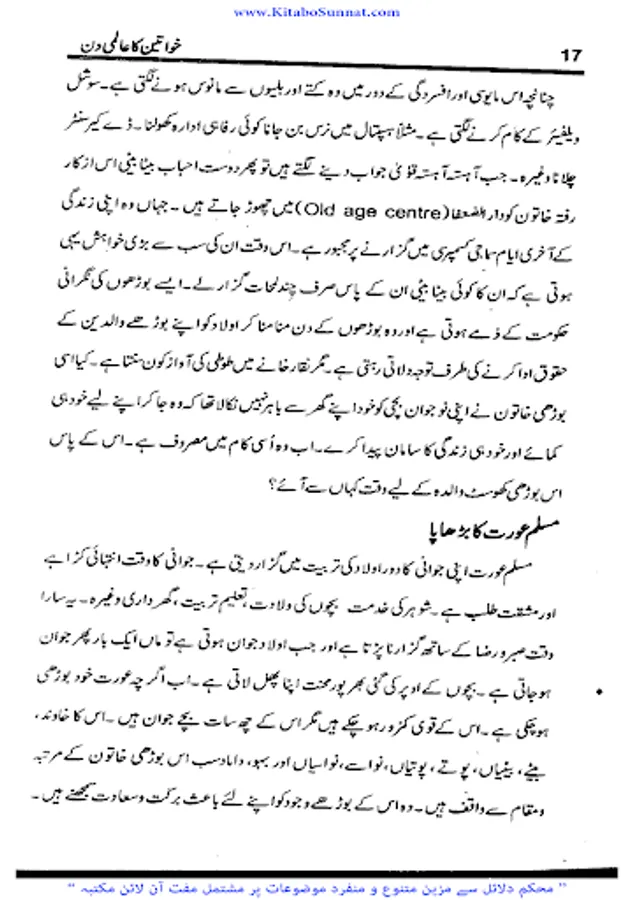 www.KitaboSunnat.com
خواتین کا عالمی دن
17
چنانچہ اس مایوسی اور افسردگی کے دور میں وہ کتے اور بلیوں سے مانوس ہونے لگتی ہے۔ سوشل
ویلفیئر کے کام کرنے لگتی ہے۔ مثلاً ہسپتال میں نرس بن جانا کوئی رفاہی ادارہ کھولنا۔ ڈے کیر سنٹر
چلانا وغیرہ۔ جب آہستہ آہستہ قویٰ جواب دینے لگتے ہیں تو پھر دوست احباب بیٹا بیٹی اس از کار
رفتہ خاتون کو دار الضعفا (Old age centre) میں چھوڑ جاتے ہیں۔ جہاں وہ اپنی زندگی
کے آخری ایام سماجی کسمپرسی میں گزارنے پر مجبور ہے۔ اس وقت ان کی سب سے بڑی خواہش یہی
ہوتی ہے کہ ان کا کوئی بیٹا بیٹی ان کے پاس صرف چند لمحات گزار لے۔ ایسے بوڑھوں کی نگرانی
حکومت کے ذمے ہوتی ہے اور وہ بوڑھوں کے دن منا منا کر اولاد کو اپنے بوڑھے والدین کے
حقوق ادا کرنے کی طرف توجہ دلاتی رہتی ہے۔ مگر نقار خانے میں طوطی کی آواز کون سنتا ہے۔ کیا اسی
بوڑھی خاتون نے اپنی نوجوان بچی کو خود اپنے گھر سے باہر نہیں نکالا تھا کہ وہ جا کر اپنے لیے خود ہی
کمائے اور خود ہی زندگی کا سامان پیدا کرے۔ اب وہ اُسی کام میں مصروف ہے۔ اس کے پاس
اس بوڑھی کھوسٹ والدہ کے لیے وقت کہاں سے آئے؟
مسلم عورت کا بڑھاپا
مسلم عورت اپنی جوانی کا دور اولاد کی تربیت میں گزار دیتی ہے۔ جوانی کا وقت انتہائی کڑا ہے
اور مشقت طلب ہے۔ شوہر کی خدمت بچوں کی ولادت، تعلیم تربیت، گھر داری وغیرہ۔ یہ سارا
وقت صبر و رضا کے ساتھ گزارنا پڑتا ہے اور جب اولاد جوان ہوتی ہے تو ماں ایک بار پھر جوان
ہو جاتی ہے۔ بچوں کے اوپر کی گئی بھر پور محنت اپنا پھل لاتی ہے۔ اب اگرچہ عورت خود بوڑھی
ہو چکی ہے۔ اس کے قوی کمزور ہو چکے ہیں مگر اس کے چھ سات بچے جوان ہیں۔ اس کا خاوند،
بیٹے، بیٹیاں، پوتے، پوتیاں، نواسے، نواسیاں اور بہو، داماد سب اس بوڑھی خاتون کے مرتبہ
و مقام سے واقف ہیں۔ وہ اس کے بوڑھے وجود کو اپنے لئے باعث برکت و سعادت سمجھتے ہیں۔
" محکم دلائل سے مزین متنوع و منفرد موضوعات پر مشتمل مفت آن لائن مکتبہ "